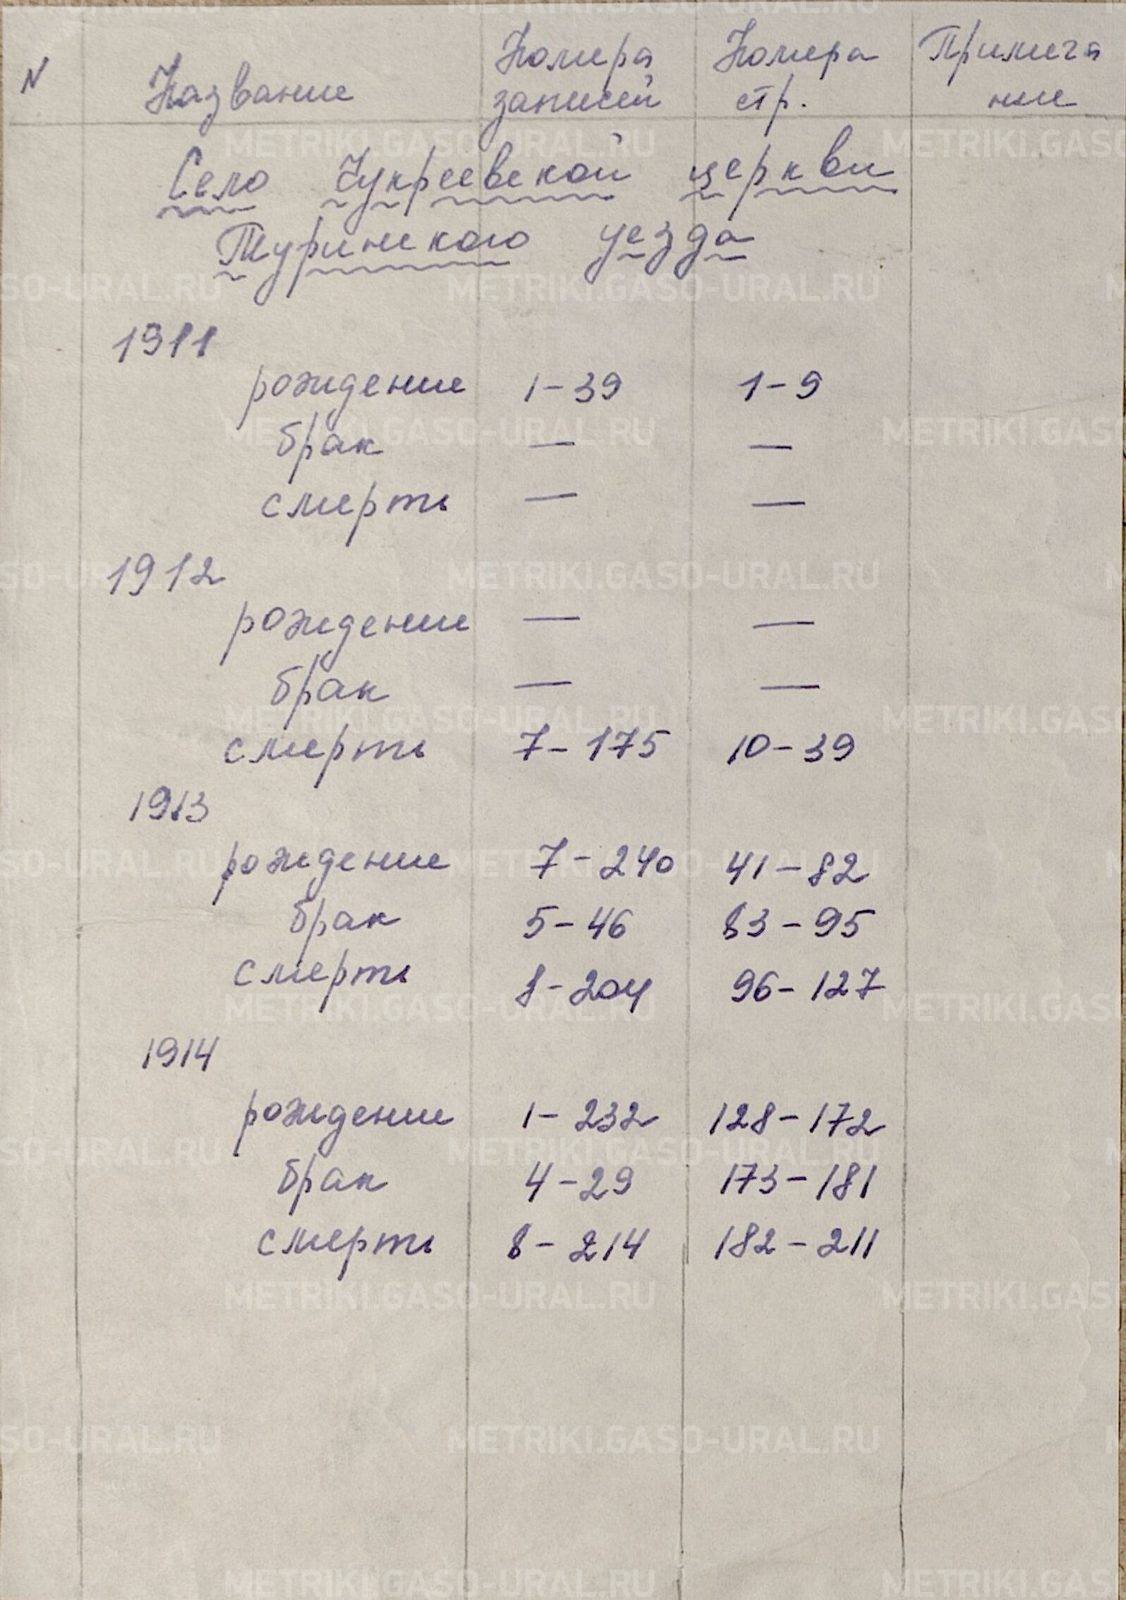 N Название Номера записей Номера стр. Примеча ние
Село Чукреевской церкви
Туринского уезда
1911
рождение 1-39 1-9
брак — —
смерть — —
1912
рождение — —
брак — —
смерть 7-175 10-39
1913
рождение 7-240 41-82
брак 5-46 83-95
смерть 8-204 96-127
1914
рождение 1-232 128-172
брак 4-29 173-181
смерть 8-214 182-211
METRIKI.GASO-URAL.RU